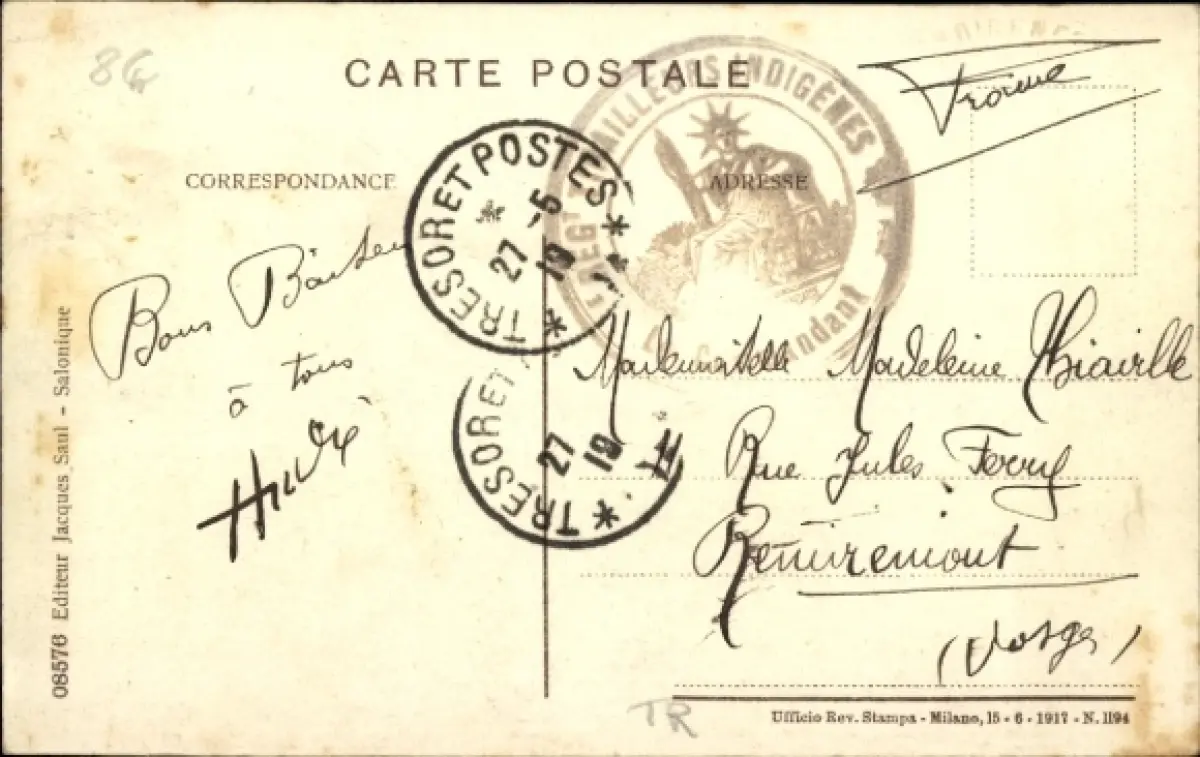 86
CARTE POSTALE
France
CORRESPONDANCE
ADRESSE
TRESOR ET POSTES
27 -5
19
TAILLEURS INDIGÈNES
REGT
Commandant
Bons
à tous
TRESOR ET
27
19
Mademoiselle Madeleine Thiaville
Rue Jules Ferry
Remiremont
(Vosges)
08576 Editeur Jacques Saul - Salonique
TR
Ufficio Rev. Stampa - Milano, 15 - 6 - 1917 - N. 1194